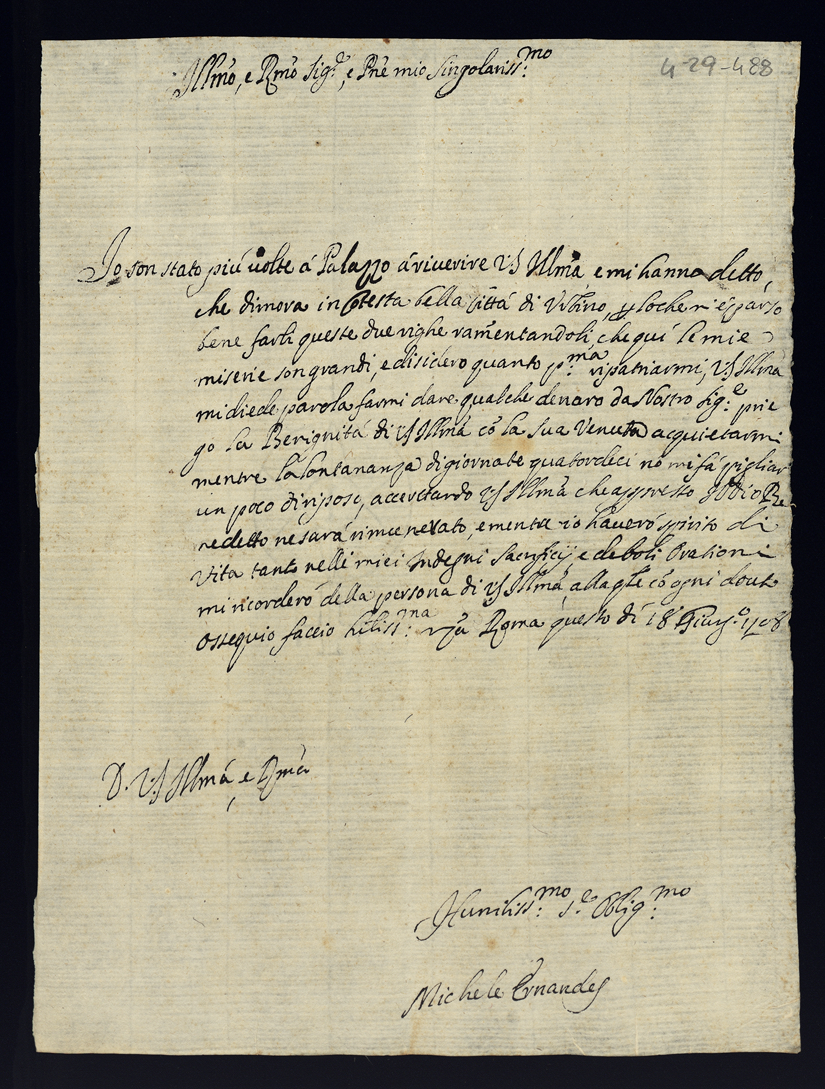 Illmo, e Rmo Sig.e, e Pne mio Singolariss:mo
4-29-488
Io son stato piú volte á Palazzo á riverire VS Illma e mi hanno detto,
che dimora in Cotesta bella Cittá di Urbino, p lo che m' é parso
bene farli queste due righe ramentandoli, che quí le mie
miserie son grandi, e disidero quanto p:ma ripatriarmi, VS Illma
mi diede parola farmi dare qualche denaro da Nostro Sig:e prie
go la Benignitá di VS Illma cõ la sua Venuta acquietarmi
mentre la lontananza di giornate quatordeci nõ mi fá pigliar
un poco di riposo, accertando VS Illma che appresso Iddio Be
nedetto ne sará rimunerato, e mentre io haveró spirito di
Vita tanto nelli miei Indegni Sacrificij e deboli Orationi
mi ricorderó della persona di VS Illma, alla qle cõ ogni dovut
ossequio faccio hūliss:ma rza Roma questo dí 18 Giug.o 1708
D. VS Illma, e Rma
Humiliss:mo s.e Oblig:mo
Michele Ernandes